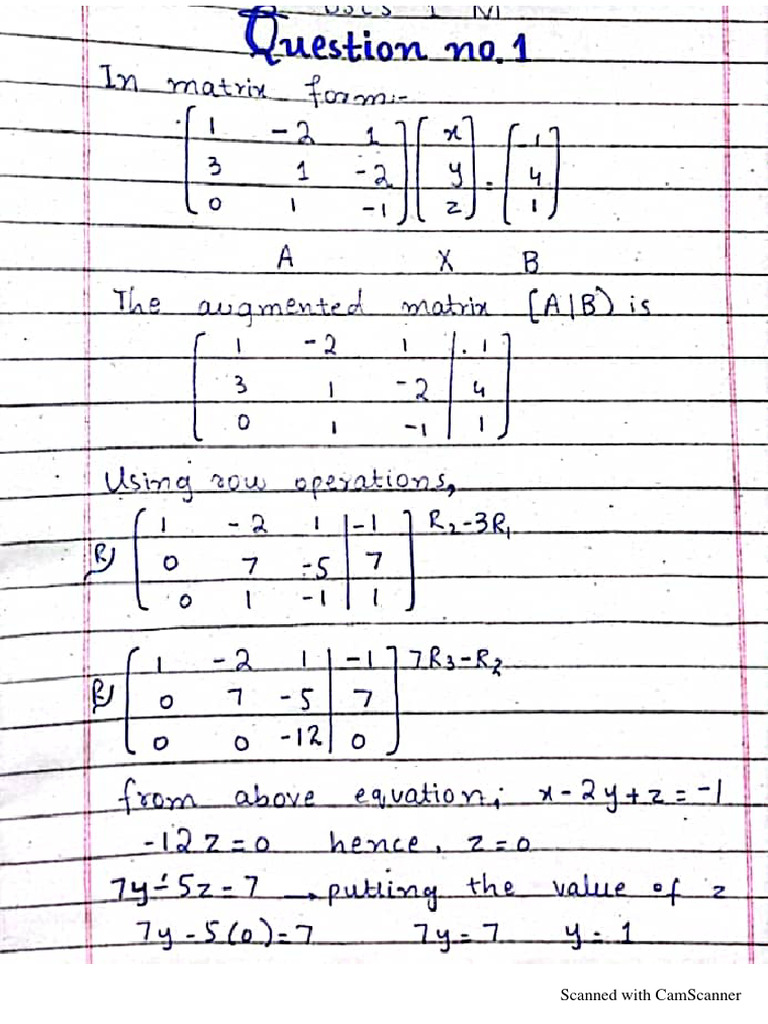 Question no.1
In matrix form:-
[ 1 -2 1 ] [ x ] [ -1 ]
[ 3 1 -2 ] [ y ] = [ 4 ]
[ 0 1 -1 ] [ z ] [ 1 ]
A X B
The augmented matrix [A|B) is
[ 1 -2 1 | . 1 ]
[ 3 1 -2 | 4 ]
[ 0 1 -1 | 1 ]
Using row operations,
[ 1 -2 1 | -1 ] R2-3R1
R [ 0 7 -5 | 7 ]
[ 0 1 -1 | 1 ]
[ 1 -2 1 | -1 ] 7R3-R2
R [ 0 7 -5 | 7 ]
[ 0 0 -12 | 0 ]
from above equation; x-2y+z=-1
-12z=0 hence, z=0
7y-5z=7 putting the value of z
7y-5(0)=7 7y=7 y=1
Scanned with CamScanner